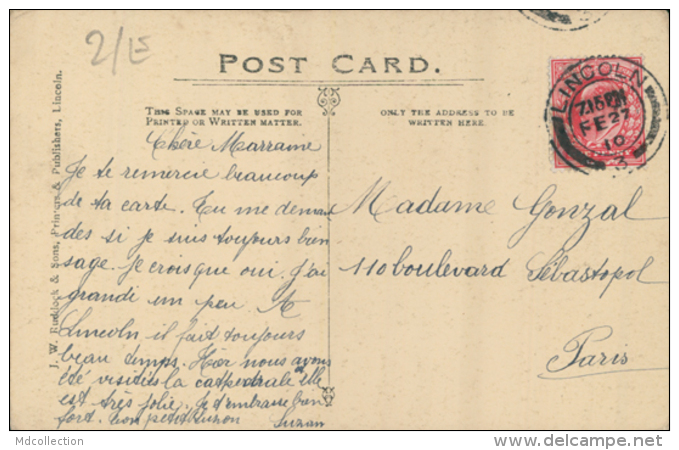 2/E
POST CARD.
THIS SPACE MAY BE USED FOR
PRINTED OR WRITTEN MATTER.
ONLY THE ADDRESS TO BE
WRITTEN HERE.
J. W. Ruddock & Sons, Printers & Publishers, Lincoln.
LINCOLN
7.15 PM
FE 27
10
3
Chère Marraine
Je te remercie beaucoup
de ta carte. Tu me deman
des si je suis toujours bien
sage. je crois que oui. j'ai
grandi un peu. A
Lincoln il fait toujours
beau temps. Hier nous avons
été visités la cathédrale elle
est très jolie. Je t'embrasse bien
fort. ton petit Suzan
Madame Gonzal
110 boulevard Sébastopol
Paris
Mdcollection
www.delcampe.net